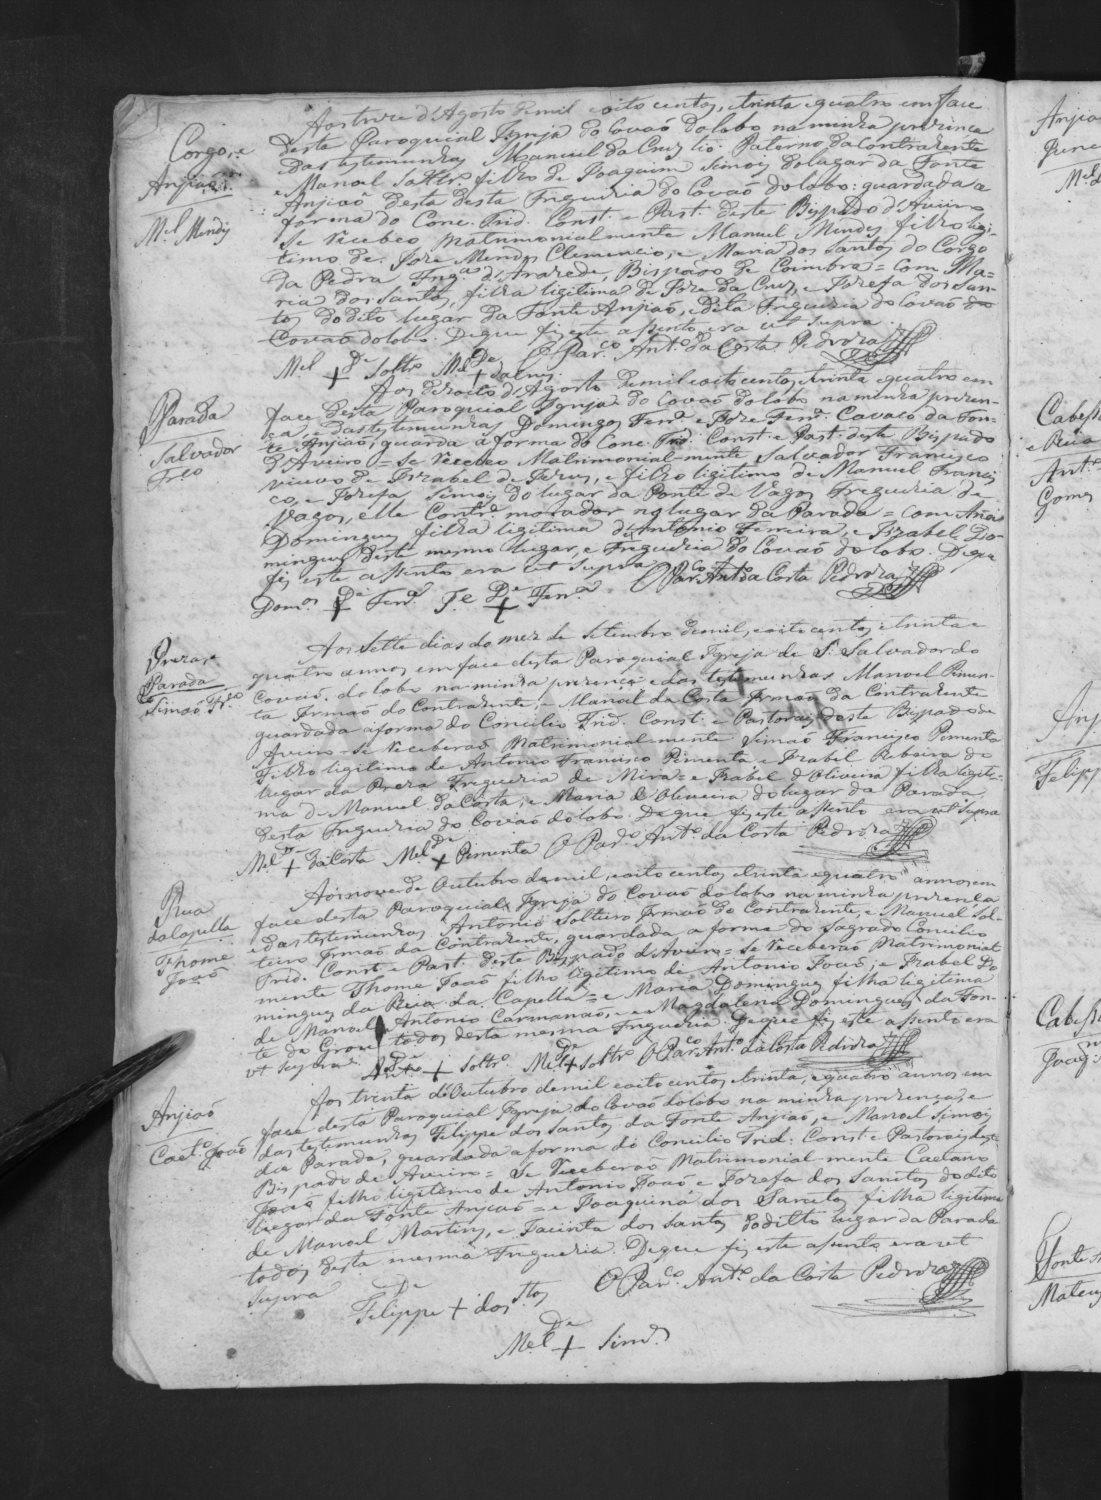 Corgo, e
Anjiaõ
M.el Mendes
Aos treze d'Agosto de mil e oito centos, e trinta e quatro em face
desta Paroquial Igreja do Covaõ do lobo na minha prezença
das testemunhas Manuel da Cruz tio Paterno da Contraente
e Manoel Soltr.o filho de Joaquim Simois do lugar da Fonte
Anjiaõ desta desta Freguezia do Covaõ do lobo: guardada a
forma do Conc. Trid. Const. e Past. deste Bispado d'Aveiro
Se Recebeo Matrimonialmente Manuel Mendes filho legi-
timo de Joze Mendes Clemencio, e Maria dos Santos do Corgo
da Pedra Freg.a d'Arazede, Bispado de Coimbra = com Ma=
ria dos Santos, filha legitima de Joze da Cruz, e Jozefa dos San-
tos do dito lugar da Fonte Anjiaõ, e dita Freguezia do Covaõ do
Covaõ do lobo. De que fiz este assento era ut supra
M.el + De Soltr.o M.el + De da Cruz O Par.co Ant.o da Costa Pedroza
Parada
Salvador
Fr.co
Aos dezoito d'Agosto de mil e oito centos, e trinta e quatro em
face desta Paroquial Igreja do Covaõ do lobo na minha prezen-
ça, e das testemunhas Domingos Ferr.a e Joze Ferr.a Cavaco da Fon-
te Anjiaõ, guarda á forma do Conc. Trid. Const. e Past. deste Bispado
d'Aveiro = Se Recebeo Matrimonial-mente Salvador Francisco
viuvo de Izabel de Jezus, e filho ligitimo de Manuel Francis
co, e Jozefa Simois do lugar da Ponte de Vagos Freguezia de
Vagos, elle Contr.e morador no lugar da Parada = com Anna
Domingues filha ligitima d'Antonio Ferreira, e Izabel Do-
mingues deste mesmo lugar, e Freguezia do Covaõ do lobo. De que
fiz este assento era ut supra O Par.co Ant.o da Costa Pedroza
Dom.os + De Ferr.a J.e + De Ferr.a
Preza, e
Parada
Simaõ Fr.co
Aos sette dias do mez de Setembro de mil, e oito centos, e trinta e
quatro annos, em face desta Paroquial Igreja de S. Salvador do
Covaõ do lobo na minha prezença e das testemunhas Manoel Pimen-
ta Irmaõ do Contraente, e Manoel da Costa Irmaõ da Contraente
guardada a forma do Concilio Trid. Const. e Pastorais deste Bispado de
Aveiro = Se Receberaõ Matrimonialmente Simaõ Francisco Pimenta
Filho ligitimo de Antonio Francisco Pimenta e Izabel Ribeira do
lugar da Preza Freguezia de Mira = e Izabel d'Oliveira filha ligiti-
ma de Manuel da Costa, e Maria de Oliveira do lugar da Parada
desta Freguezia do Covaõ do lobo. De que fiz este assento era ut supra
M.el + De da Costa M.el + De Pimenta O Par.co Ant.o da Costa Pedroza
Rua
da Capella
Thome
Joaõ
Aos nove de Outubro de mil, e oito centos, e trinta e quatro annos em
face desta Paroquial Igreja do Covaõ do lobo na minha prezença
e das testemunhas Antonio Solteiro Irmaõ do Contraente, e Manuel Sol-
teiro Irmaõ da Contraente, guardada a forma do Sagrado Concilio
Trid. Const. e Past. deste Bispado d'Aveiro = Se Receberaõ Matrimonial
mente Thome Joaõ filho ligitimo de Antonio Joaõ, e Izabel Do
mingues da Rua da Capella = e Maria Domingues filha ligitima
de Manoel Antonio Carmanaõ, e Magdalena Domingues da Fon-
te do Grou todos desta mesma Freguezia. De que fiz este assento era
ut supra. Ant.o + De Soltr.o M.el + De Soltr.o O Par.co Ant.o da Costa Pedroza
Anjiaõ
Caet.o Joaõ
Aos trinta de Outubro de mil e oito centos, e trinta, e quatro annos em
face desta Paroquial Igreja do Covaõ do lobo na minha prezença, e
das testemunhas Filippe dos Santos da Fonte Anjiaõ, e Manoel Simois
da Parada, guardada a forma do Concilio Trid: Const. e Pastorais deste
Bispado de Aveiro = Se Receberaõ Matrimonial mente Caetano
Joaõ filho ligitimo de Antonio Joaõ e Jozefa dos Santos do dito
lugar da Fonte Anjiaõ = e Joaquina dos Santos filha ligitima
de Manoel Martins, e Jacinta dos Santos do ditto lugar da Parada
todos desta mesma Freguezia. De que fiz este assento era ut
supra O Par.co Ant.o da Costa Pedroza
Filippe + De dos S.tos
M.el + De Sim.s
Anjiaõ
Cabess
e Rua
Ant.o
Gomes
Anj
Felipp
Cabess
Joaq
Fonte A
Mateus